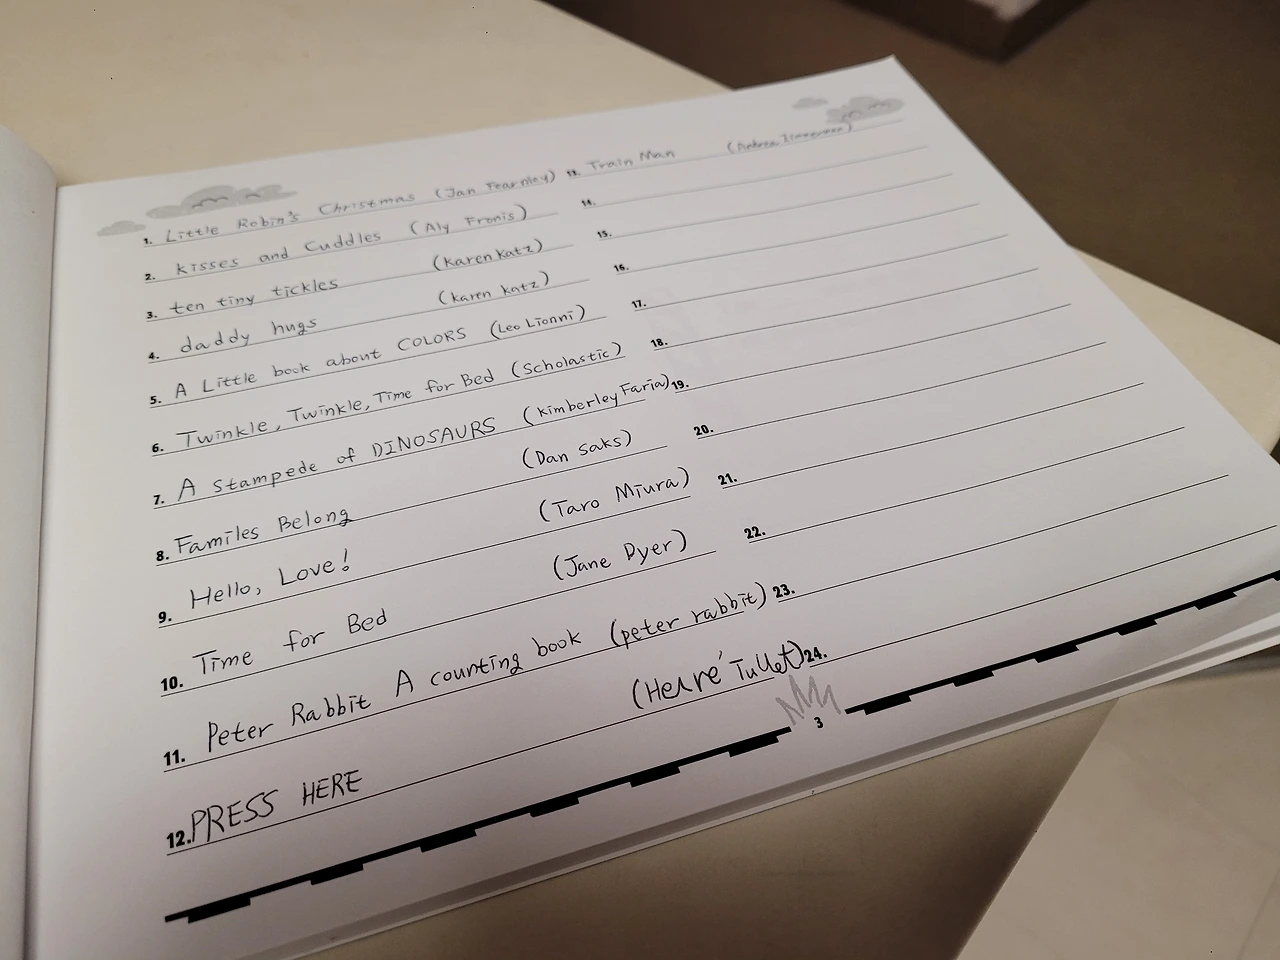 1. Little Robin's Christmas (Jan Fearnley)
2. kisses and Cuddles (Aly Fronis)
3. ten tiny tickles (Karen Katz)
4. daddy hugs (karen katz)
5. A Little book about COLORS (Leo Lionni)
6. Twinkle, Twinkle, Time for Bed (Scholastic)
7. A Stampede of DINOSAURS (Kimberley Faria)
8. Familes Belong (Dan saks)
9. Hello, Love! (Taro Miura)
10. Time for Bed (Jane Dyer)
11. Peter Rabbit A counting book (peter rabbit)
12. PRESS HERE (Herve' Tullet)
13. Train Man (Andrea Zimmerman)
14.
15.
16.
17.
18.
19.
20.
21.
22.
23.
24.
3